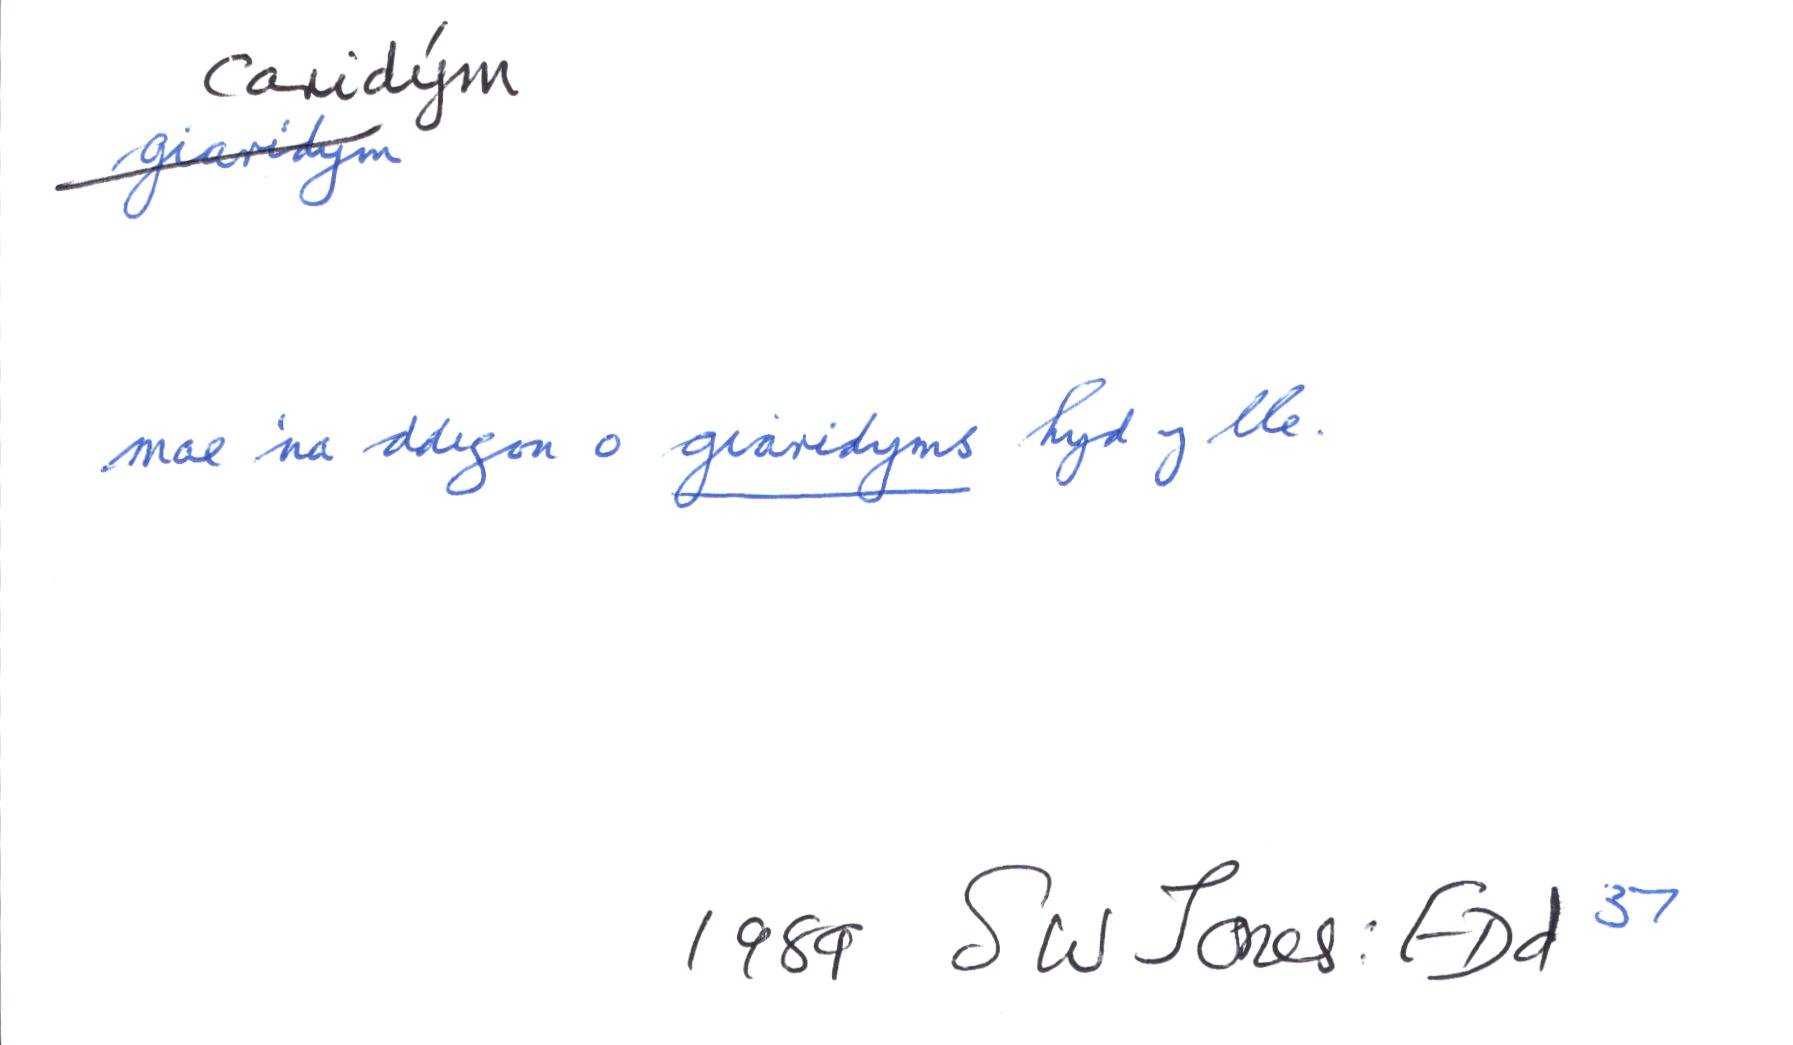 caridým
giaridym
mae 'na ddigon o giaridyms hyd y lle.
1989 SW Jones: EDd 37